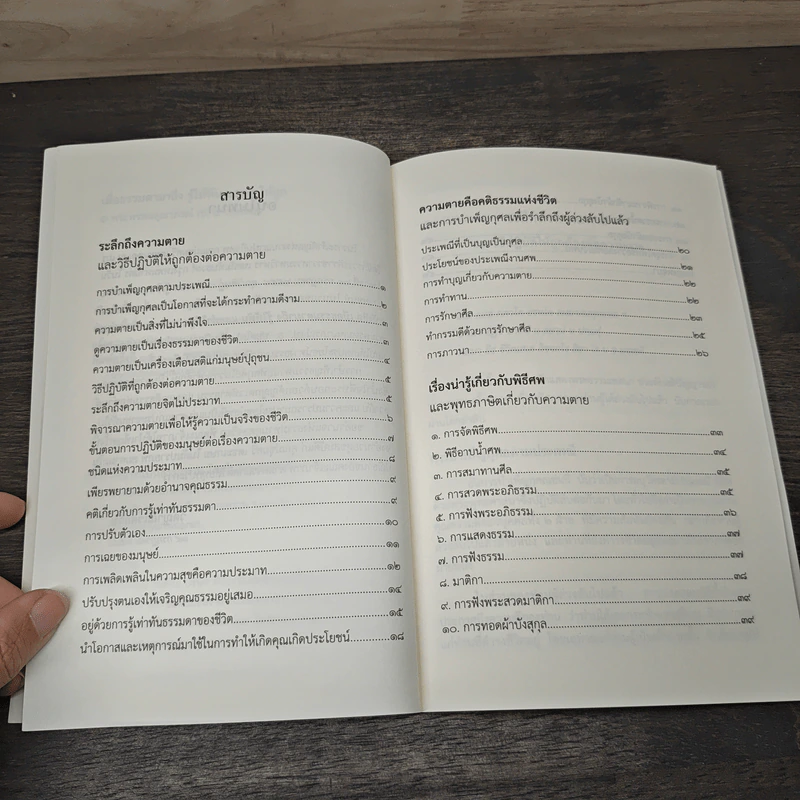 สารบัญ
ระลึกถึงความตาย
และวิธีปฏิบัติให้ถูกต้องต่อความตาย
การบำเพ็ญกุศลตามประเพณี....................๑
การบำเพ็ญกุศลเป็นโอกาสที่จะได้กระทำความดีงาม....................๒
ความตายเป็นสิ่งที่ไม่น่าพึงใจ....................๓
ดูความตายเป็นเรื่องธรรมดาของชีวิต....................๓
ความตายเป็นเครื่องเตือนสติแก่มนุษย์ปุถุชน....................๔
วิธีปฏิบัติที่ถูกต้องต่อความตาย....................๕
ระลึกถึงความตายจิตไม่ประมาท....................๕
พิจารณาความตายเพื่อให้รู้ความเป็นจริงของชีวิต....................๖
ขั้นตอนการปฏิบัติของมนุษย์ต่อเรื่องความตาย....................๗
ชนิดแห่งความประมาท....................๘
เพียรพยายามด้วยอำนาจคุณธรรม....................๙
คติเกี่ยวกับการรู้เท่าทันธรรมดา....................๙
การปรับตัวเอง....................๑๐
การเฉยของมนุษย์....................๑๑
การเพลิดเพลินในความสุขคือความประมาท....................๑๒
ปรับปรุงตนเองให้เจริญคุณธรรมอยู่เสมอ....................๑๔
อยู่ด้วยการรู้เท่าทันธรรมดาของชีวิต....................๑๕
นำโอกาสและเหตุการณ์มาใช้ในการทำให้เกิดคุณเกิดประโยชน์....................๑๘
ความตายคือคติธรรมแห่งชีวิต
และการบำเพ็ญกุศลเพื่อรำลึกถึงผู้ล่วงลับไปแล้ว
ประเพณีที่เป็นบุญเป็นกุศล....................๒๐
ประโยชน์ของประเพณีงานศพ....................๒๑
การทำบุญเกี่ยวกับความตาย....................๒๒
การทำทาน....................๒๒
การรักษาศีล....................๒๓
ทำกรรมดีด้วยการรักษาศีล....................๒๕
การภาวนา....................๒๖
เรื่องน่ารู้เกี่ยวกับพิธีศพ
และพุทธภาษิตเกี่ยวกับความตาย
๑. การจัดพิธีศพ....................๓๓
๒. พิธีอาบน้ำศพ....................๓๔
๓. การสมาทานศีล....................๓๕
๔. การสวดพระอภิธรรม....................๓๕
๕. การฟังพระอภิธรรม....................๓๖
๖. การแสดงธรรม....................๓๗
๗. การฟังธรรม....................๓๗
๘. มาติกา....................๓๘
๙. การฟังพระสวดมาติกา....................๓๙
๑๐. การทอดผ้าบังสุกุล....................๓๙